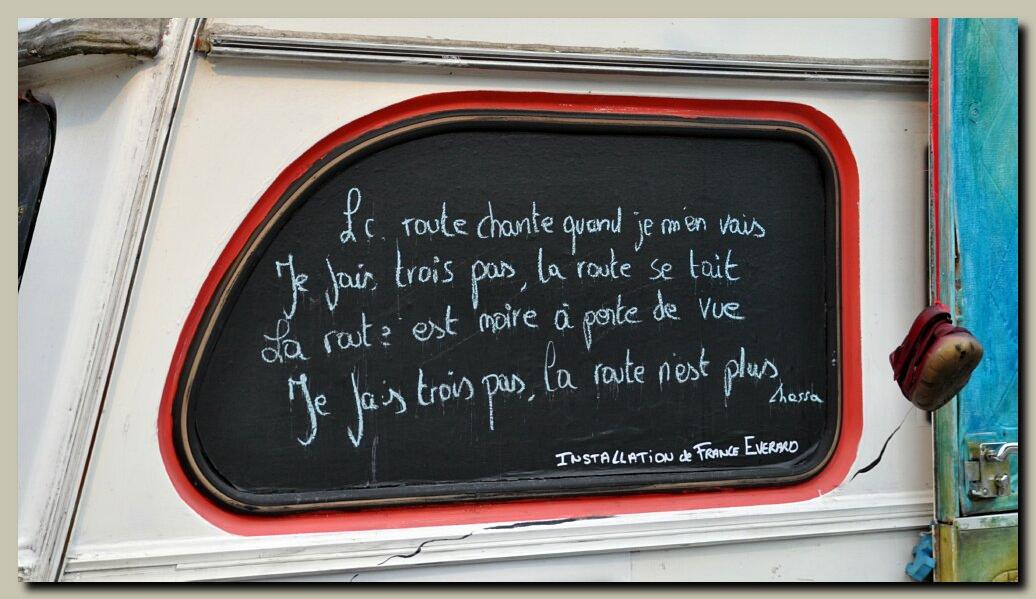 La route chante quand je m'en vais
Je fais trois pas, la route se tait
La route est noire à perte de vue
Je fais trois pas, la route n'est plus
INSTALLATION de FRANCE EVERARD